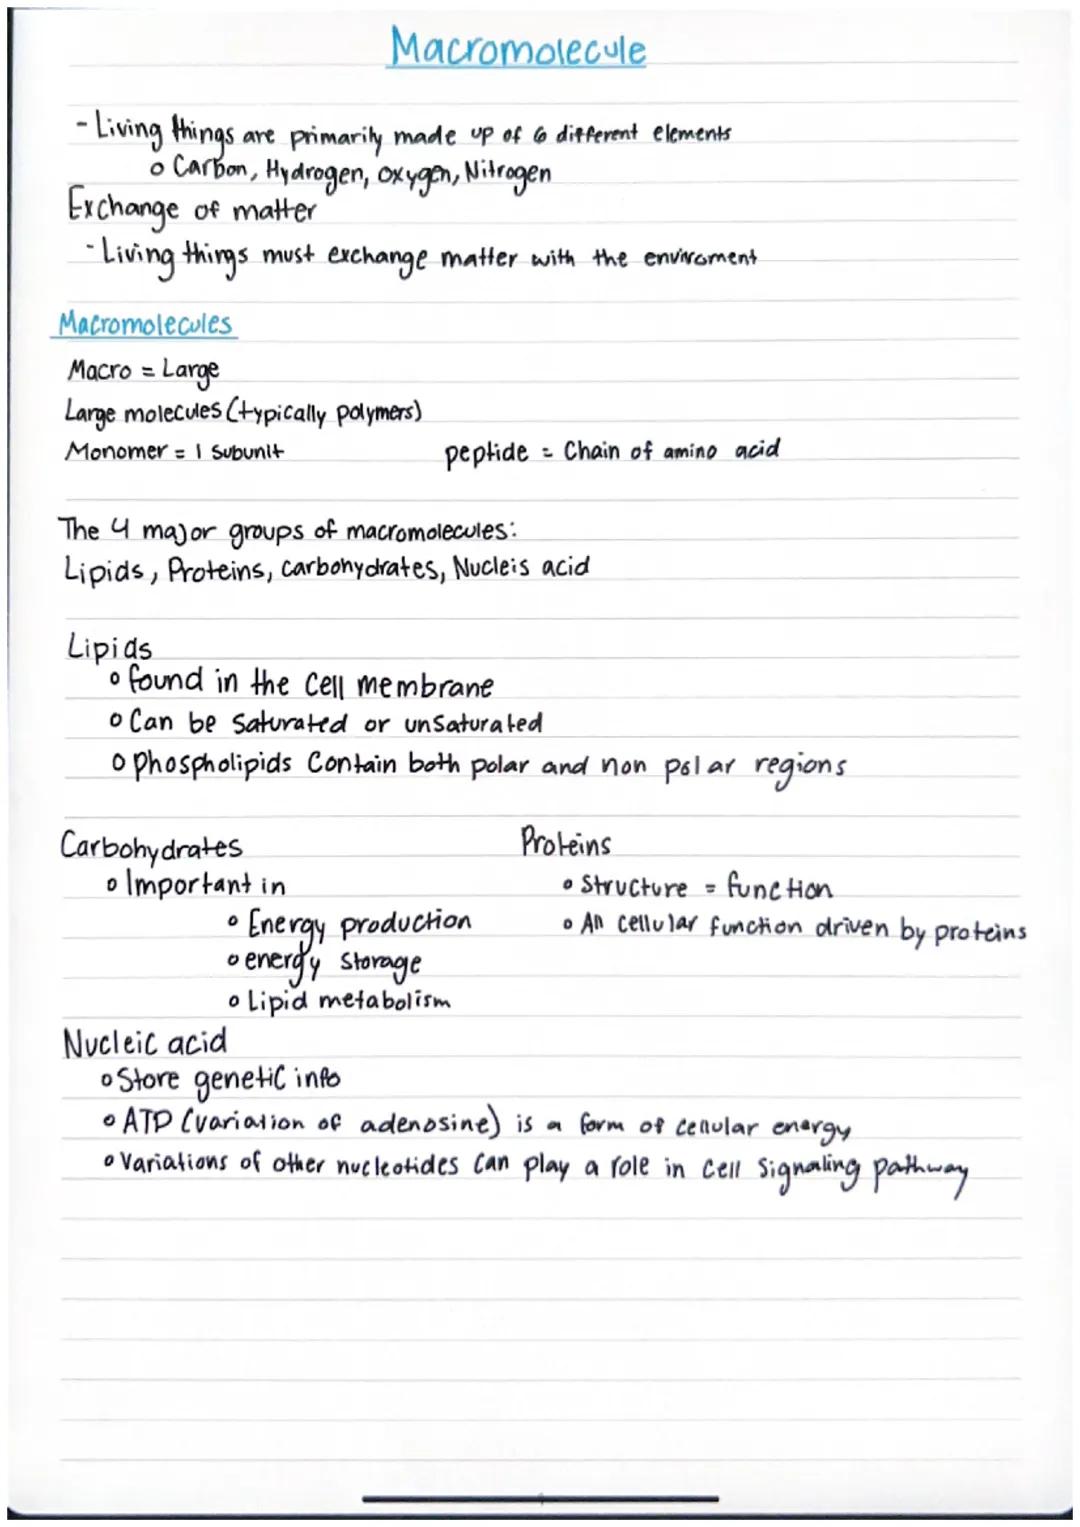 Macromolecule
- Living things are primarily made up of 6 different elements
o Carbon, Hydrogen, oxygen, Nitrogen
Exchange of matter
- Living things must exchange matter with the enviroment
Macromolecules
Macro = Large
Large molecules (typically polymers)
Monomer = 1 Subunit
peptide = Chain of amino acid
The 4 major groups of macromolecules:
Lipids, Proteins, carbohydrates, Nucleis acid
Lipids
o found in the cell membrane
o Can be saturated or unsaturated
o phospholipids contain both polar and non polar regions
Carbohydrates
o Important in
o Energy production
o energy storage
o Lipid metabolism
Proteins
o Structure = function
o All cellular function driven by proteins
Nucleic acid
o Store genetic info
o ATP (variation of adenosine) is a form of cellular energy
o Variations of other nucleotides can play a role in cell signaling pathway